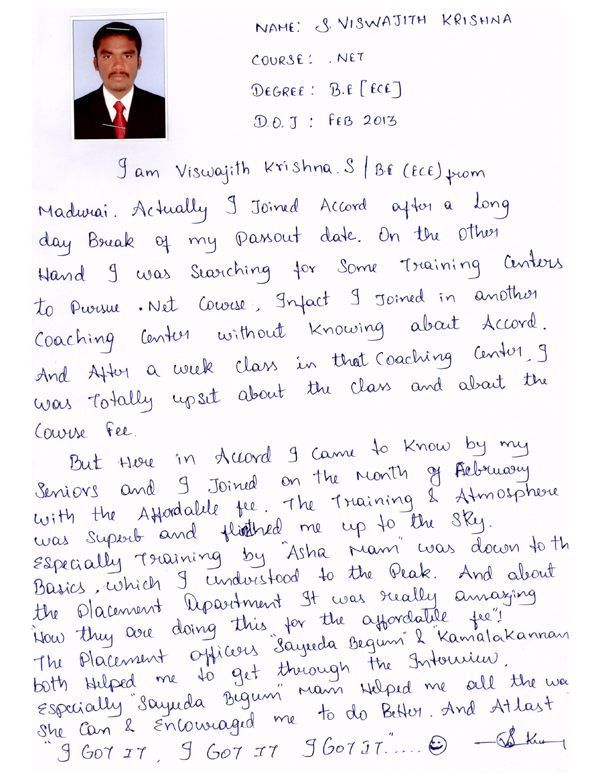 NAME: S. VISWAJITH KRISHNA
COURSE: .NET
DEGREE: B.E [ECE]
D.O.J : FEB 2013
I am Viswajith Krishna.S / BE (ECE) from
Madurai. Actually I Joined Accord after a Long
day Break of my Passout date. On the Other
Hand I was Searching for Some Training Centers
to Pursue .Net Course, Infact I Joined in another
Coaching Center without Knowing about Accord.
And After a week Class in that Coaching Center, I
was Totally upset about the Class and about the
Course Fee.
But Here in Accord I Came to Know by my
Seniors and I Joined on the Month of February
with the Affordable fee. The Training & Atmosphere
was Superb and me up to the Sky.
Especially Training by "Asha Mam" was down to th
Basics, which I understood to the Peak. And about
the Placement Department It was really amazing
"How they are doing this for the affordable fee"!
The Placement officers "Sayeeda Begum" & "Kamalakannan
both Helped me to get through the Interview.
Especially "Sayeeda Begum" Mam Helped me all the wa
She Can & Encouraged me to do Better. And Atlast
"I GOT IT, I GOT IT I GOT IT"..... ☺